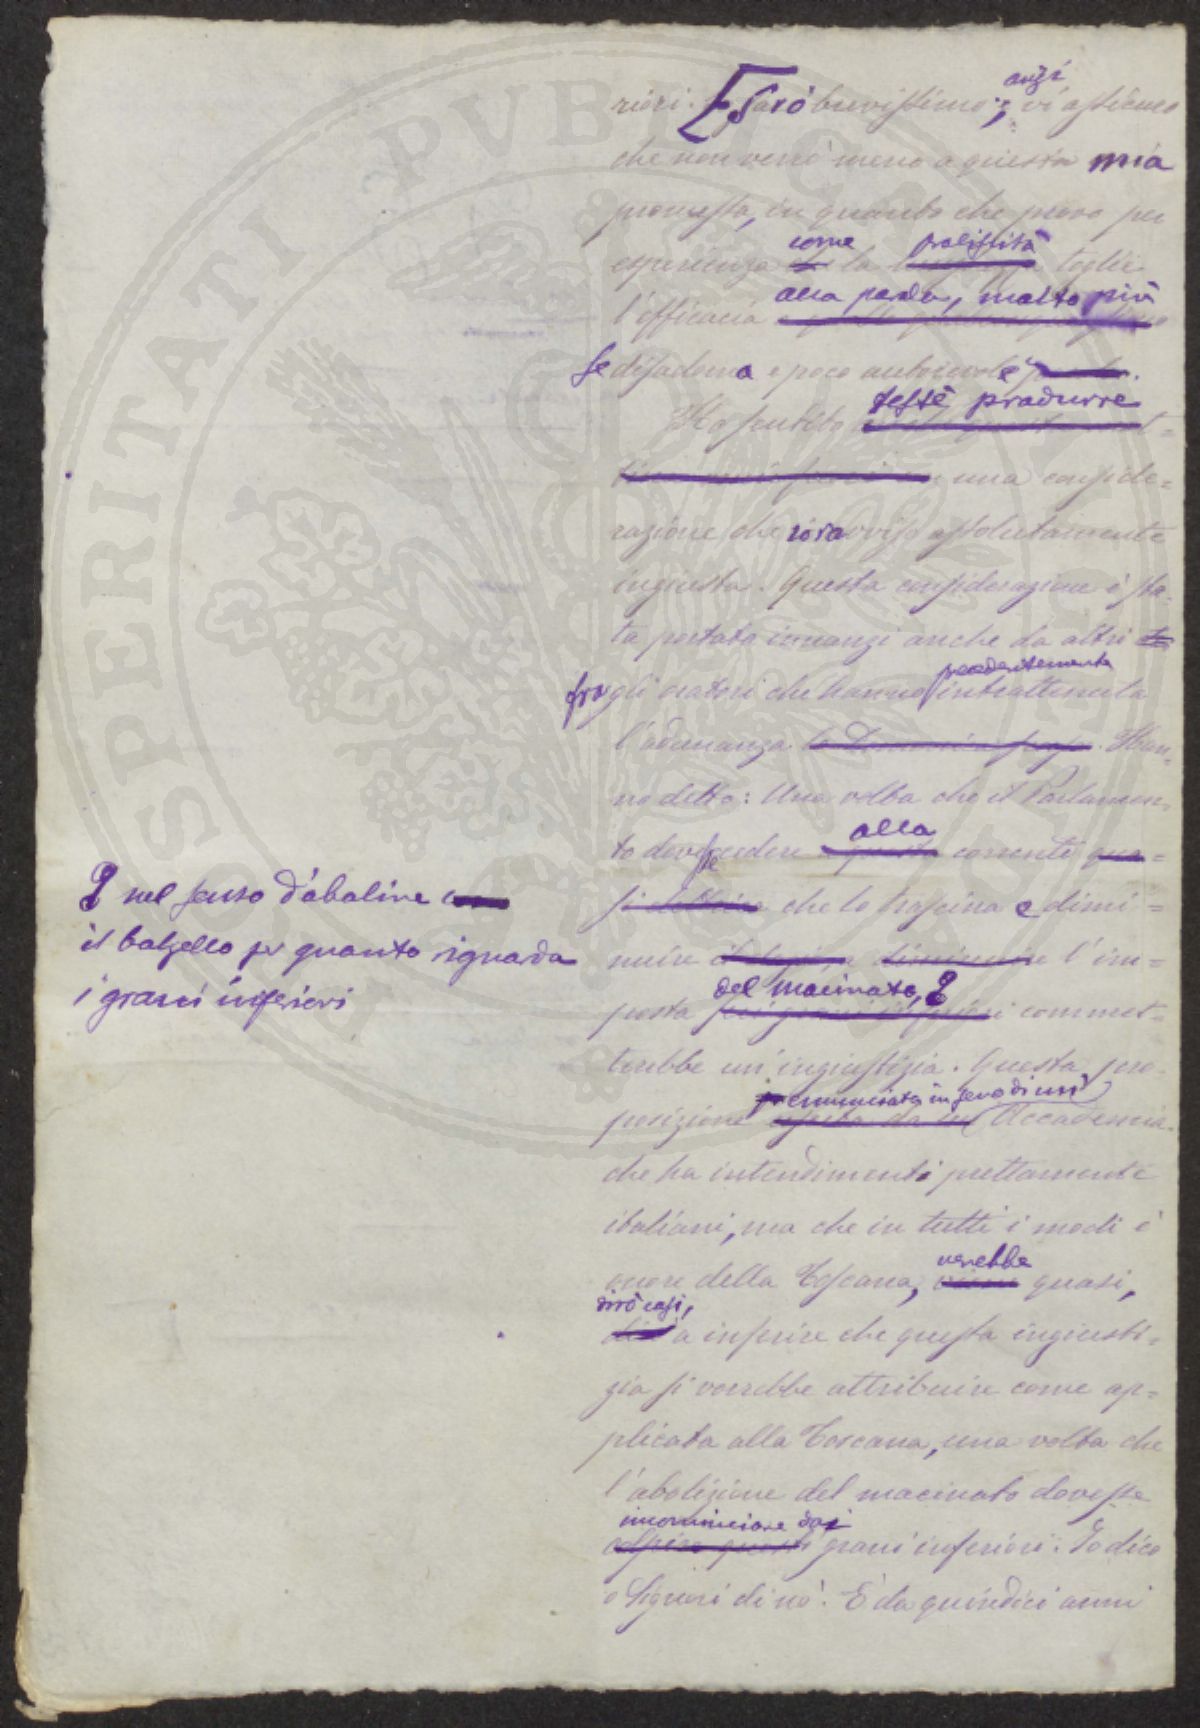 PROSPERITATI PUBLICAE
anzi
riori. Sarò brevissimo; vi assicuro
che non verrò meno a questa mia
promessa, in quanto che provo per
come prolissità
esperienza la toglie
alla parola, molto più
l'efficacia
se disadorna e poco autorevole.
testè produrre
Ho sentito
una conside=
razione che io ravviso assolutamente
ingiusta. Questa considerazione è sta=
ta portata innanzi anche da altri
precedentemente
fra gli oratori che hanno intrattenuta
l'adunanza. Han=
no detto: Una volta che il Parlamen=
alla
to dovesse cedere corrente
che lo trascina e dimi=
nuire l'im=
del macinato,
posta commet=
terebbe un'ingiustizia. Questa pro=
enunciata in seno di un'
posizione Accademia
che ha intendimenti prettamente
italiani, ma che in tutti i modi è
verrebbe
onore della Toscana, quasi,
dirò così,
a inferire che questa ingiusti=
zia si vorrebbe attribuire come ap=
plicata alla Toscana, una volta che
l'abolizione del macinato dovesse
incominciare dai
grani inferiori. Io dico
o Signori di no! È da quindici anni
nel senso d'abolire
il balzello per quanto riguarda
i grani inferiori